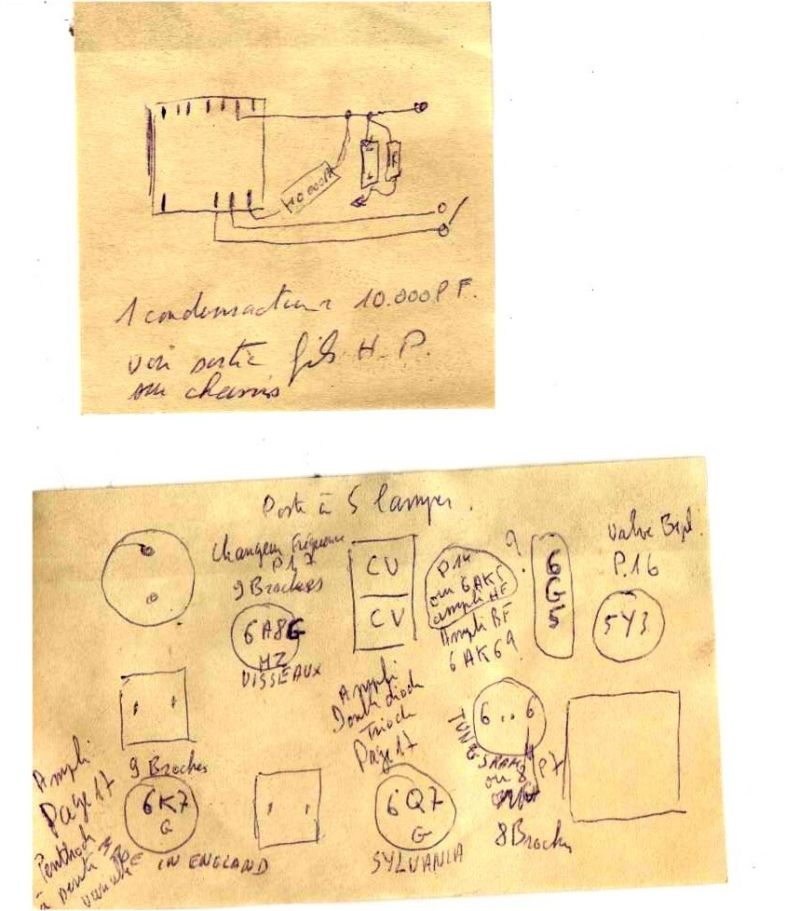 10.000PF
1 condensateur 10.000 PF.
voir sortie fils H.P.
sur chassis
Poste à 5 lampes.
Changeur Fréquence
P17
9 Broches
6A8G
MZ
VISSEAUX
CV
CV
P14
ou 6AK5
ampli HF
?
Ampli BF
6AK6?
6G5
Valve
P.16
5Y3
Ampli
Double diode
Triode
Page 17
6 .. 6
TUNGSRAM
ou 8
P7
8 Broches
9 Broches
Ampli
Page 17
Penthode
à pente
variable
6K7
G
IN ENGLAND
6Q7
G
SYLVANIA